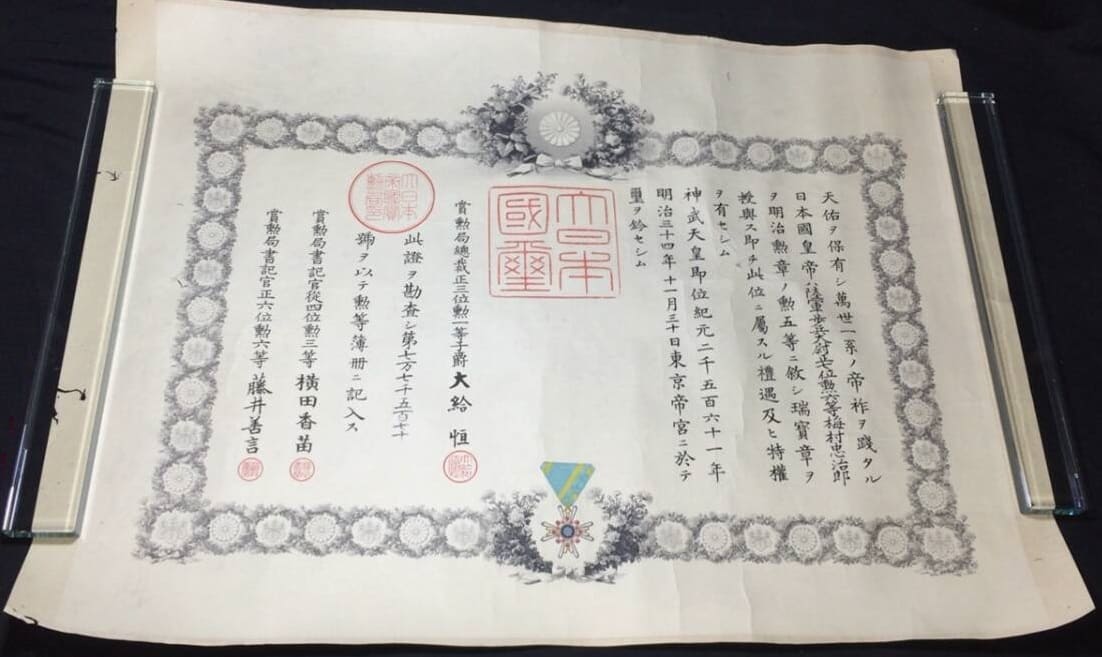 天佑ヲ保有シ萬世一系ノ帝祚ヲ踐タル
日本國皇帝ハ陸軍歩兵大尉正七位勲六等梅村忠治郎
ヲ明治勲章ノ勲五等ニ敘シ瑞寶章ヲ
授與ス即チ此位ニ屬スル禮遇及ヒ特權
ヲ有セシム
神武天皇即位紀元二千五百六十一年
明治三十四年十一月三十日東京帝宮ニ於テ
璽ヲ鈐セシム
大日本
國璽
賞勲局總裁正三位勲一等子爵大給 恒
此證ヲ勘査シ第七万七千五百七十
號ヲ以テ勲等簿册ニ記入ス
賞勲局書記官從四位勲三等横田香苗
賞勲局書記官正六位勲六等藤井善言